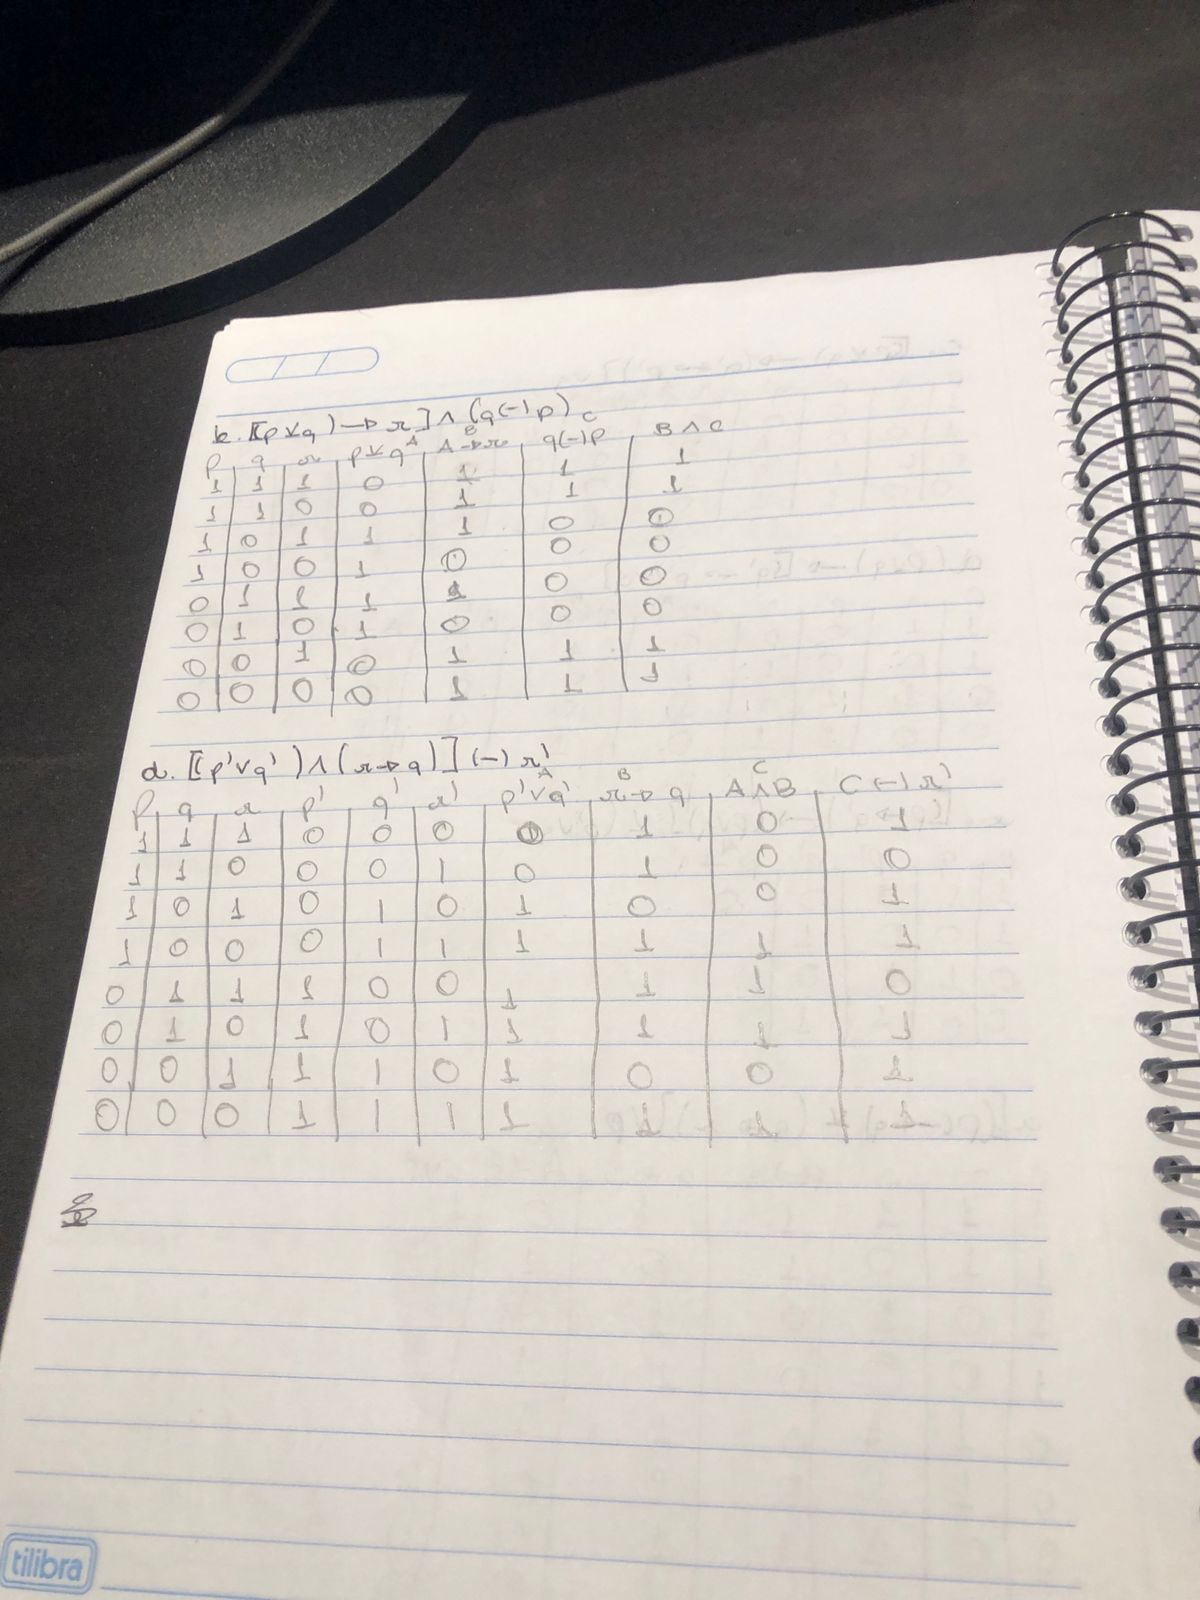 b. [(p ⊻ q) → r] ∧ (q (-) p)
p q r p ⊻ q A A → r B q (-) p C B ∧ C
1 1 1 0 1 1 1
1 1 0 0 1 1 1
1 0 1 1 1 0 0
1 0 0 1 0 0 0
0 1 1 1 1 0 0
0 1 0 1 0 0 0
0 0 1 0 1 1 1
0 0 0 0 1 1 1
d. [(p' ∨ q') ∧ (r → q)] (-) r'
p q r p' q' r' p' ∨ q' A r → q B A ∧ B C C (-) r'
1 1 1 0 0 0 0 1 0 1
1 1 0 0 0 1 0 1 0 0
1 0 1 0 1 0 1 0 0 1
1 0 0 0 1 1 1 1 1 1
0 1 1 1 0 0 1 1 1 0
0 1 0 1 0 1 1 1 1 1
0 0 1 1 1 0 1 0 0 1
0 0 0 1 1 1 1 1 1 1
tilibra